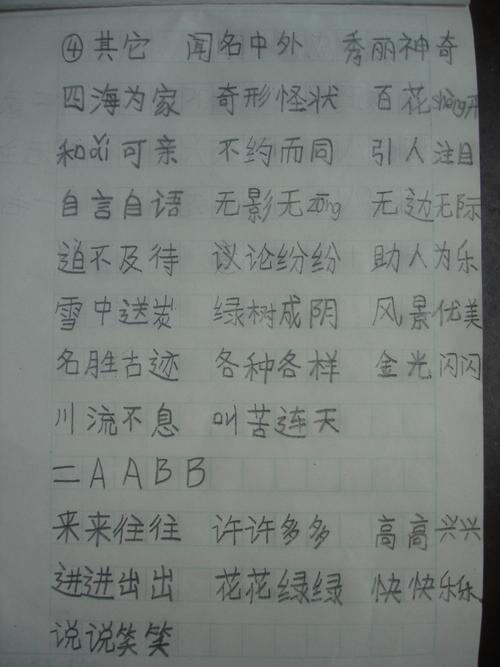 ④其它 闻名中外 秀丽神奇
四海为家 奇形怪状 百花 开
和ǎi可亲 不约而同 引人注目
自言自语 无影无zōng 无边无际
迫不及待 议论纷纷 助人为乐
雪中送炭 绿树成阴 风景优美
名胜古迹 各种各样 金光闪闪
川流不息 叫苦连天
二AABB
来来往往 许许多多 高高兴兴
进进出出 花花绿绿 快快乐乐
说说笑笑